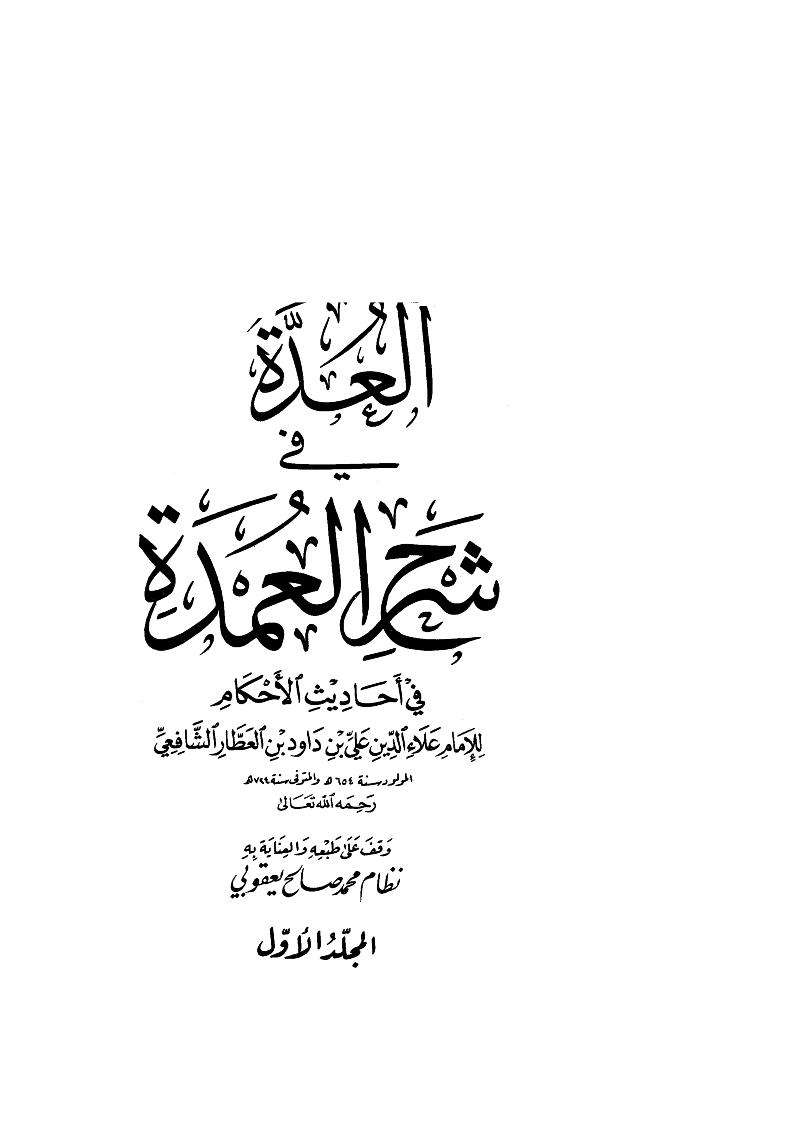 العُدَّة
في
شَرْحِ العُمْدَةِ
في أَحَادِيْثِ الأَحْكَامِ
لِلإِمَامِ عَلَاءِ الدِّينِ عَلِيِّ بْنِ دَاود بْنِ العَطَّارِ الشَّافِعِيِّ
المولود سنة ٦٥٤ هـ والمتوفى سنة ٧٢٤ هـ
رَحِمَه اللّٰه تَعَالىٰ
وَقَفَ عَلَى طَبْعِهِ وَالعِنَايَة بِهِ
نظام محمد صالح يعقوبي
المجلّدُ الأوّل